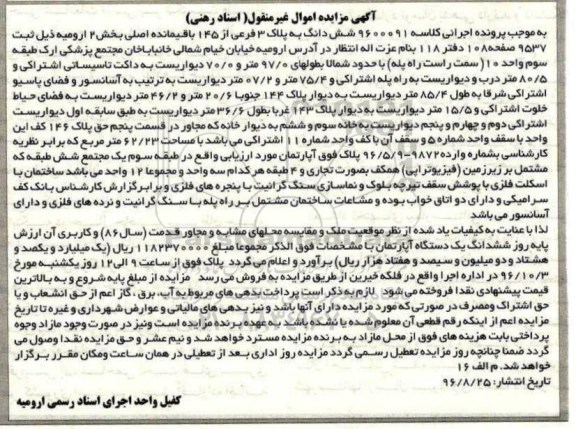 آگهی مزایده اموال غیرمنقول( اسناد رهنی)
به موجب پرونده اجرائی کلاسه ۹۶۰۰۰۹۱ شش دانگ به پلاک ۳ فرعی از ۱۴۵ باقیمانده اصلی بخش ۲ ارومیه ذیل ثبت
۹۵۳۷ صفحه ۱۰۸ دفتر ۱۱۸ بنام عزت اله انتظار در آدرس ارومیه خیابان خیام شمالی خانباباخان مجتمع پزشکی ارک طبقه
سوم واحد ۱۰ ( سمت راست راه پله) با حدود شمالا بطولهای ۹/۰ متر و ۷/۰۰ دیواریست به داکت تاسیساتی اشتراکی و
۸۰/۵ متر درب و دیواریست به راه پله اشتراکی و ۷۵/۴ متر و ۰۷/۲ متر دیواریست به ترتیب به آسانسور و فضای پاسیو
اشتراکی شرقا به طول ۸۵/۴ متر دیواریست به دیوار پلاک ۱۴۴ جنوبا ۲۰/۶ متر و ۴۶/۲ متر دیواریست به فضای حیاط
خلوت اشتراکی و ۱۵/۵ متر دیواریست به دیوار پلاک ۱۴۳ غربا بطول ۳۶/۶ متر دیواریست به طبق سابقه اول دیواریست
اشتراکی دوم و چهارم و پنجم دیواریست به خانه سوم و ششم به دیوار خانه که مجاور در قسمت پنجم حق پلاک ۱۴۶ کف این
واحد با سقف واحد شماره ۵ و سقف آن با کف واحد شماره ۱۱ اشتراکی می باشد با مساحت ۶۲/۲۳ متر مربع که برابر نظریه
کارشناسی بشماره وارده ۹۸۷۲-۹۶/۵/۹ پلاک فوق آپارتمان مورد ارزیابی واقع در طبقه سوم یک مجتمع شش طبقه که
مشتمل بر زیرزمین (فیزیوتراپی) همکف بصورت تجاری و ۴ طبقه هر کدام سه واحد و مجموعا ۱۲ واحد می باشد ساختمان با
اسکلت فلزی با پوشش سقف تیرچه بلوک و نماسازی سنگ گرانیت با پنجره های فلزی و برابر گزارش کارشناس بانک کف
سرامیکی و دارای دو اتاق خواب بوده و مشاعات ساختمان مشتمل بر راه پله با سنگ گرانیت و نرده های فلزی و دارای
آسانسور می باشد
لذا با عنایت به کیفیات یاد شده از نظر موقعیت ملک و مقایسه محلهای مشابه و مجاور قدمت (سال ۸۶) و کاربری آن ارزش
پایه روز ششدانگ یک دستگاه آپارتمان با مشخصات فوق الذکر مجموعا مبلغ ریال (یک میلیارد و یکصد و
هشتاد و دو میلیون و سیصد و هفتاد هزار ریال) برآورد و اعلام می گردد پلاک فوق از ساعت ۹ الی ۱۲ روز یکشنبه مورخ
۹۶/۱۰/۳ در اداره اجرا واقع در فلکه خیرین از طریق مزایده به فروش می رسد مزایده از مبلغ پایه شروع و به بالاترین
قیمت پیشنهادی نقدا فروخته می شود لازم به ذکر است پرداخت بدهی های مربوط به آب، برق، گاز اعم از حق انشعاب و یا
حق اشتراک و مصرف در صورتی که مورد مزایده دارای آنها باشد و نیز بدهی های مالیاتی و عوارض شهرداری و غیره تا تاریخ
مزایده اعم از اینکه رقم قطعی آن معلوم شده یا نشده باشد به عهده برنده مزایده است و نیز در صورت وجود مازاد وجوه
پرداختی بابت هزینه های فوق از محل مازاد به برنده مزایده مسترد خواهد شد و نیم عشر و حق مزایده نقدا وصول می
گردد ضمنا چنانچه روز مزایده تعطیل رسمی گردد مزایده روز اداری بعد از تعطیلی در همان ساعت و مکان مقرر برگزار
خواهد شد. م الف ۱۶
تاریخ انتشار: ۹۶/۸/۲۵
کفیل واحد اجرای اسناد رسمی ارومیه